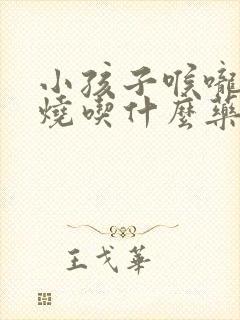 小孩子喉嚨
燒喫什麼藥
王戈華